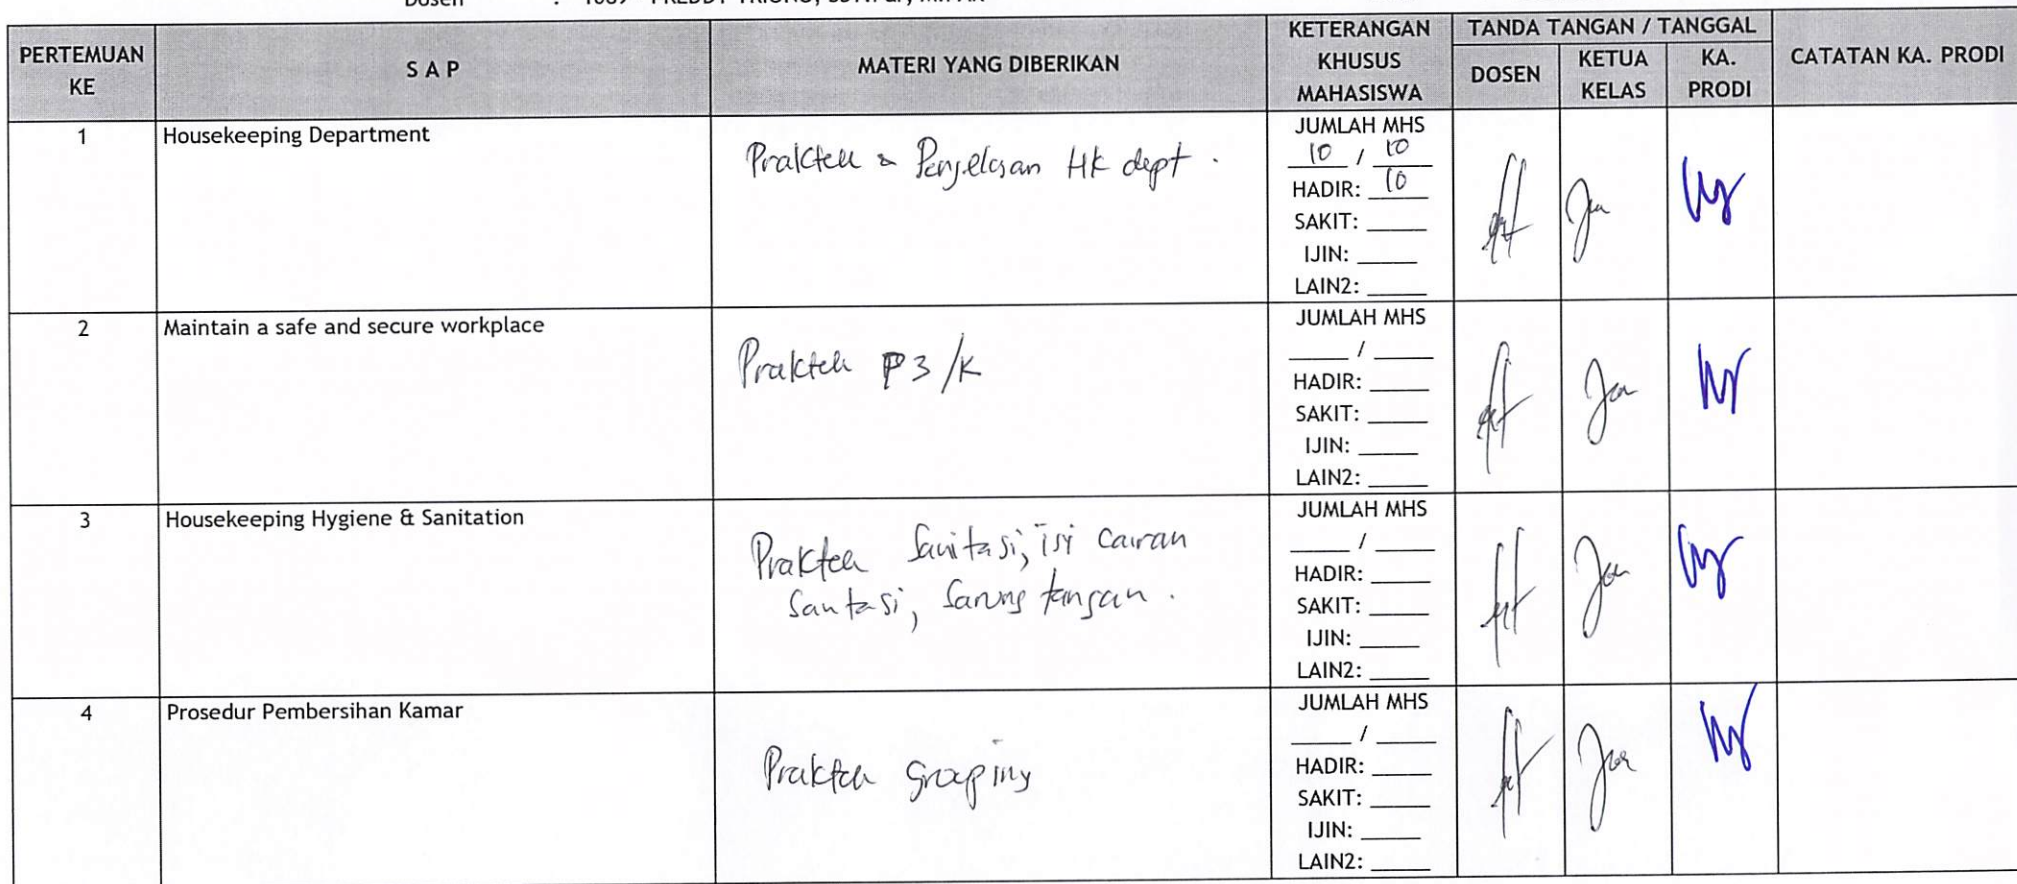 Dosen :
PERTEMUAN KE
S A P
MATERI YANG DIBERIKAN
KETERANGAN KHUSUS MAHASISWA
TANDA TANGAN / TANGGAL
DOSEN
KETUA KELAS
KA. PRODI
CATATAN KA. PRODI
1
Housekeeping Department
Praktek & Penjelasan HK dept.
JUMLAH MHS
10 / 10
HADIR: 10
SAKIT:
IJIN:
LAIN2:
2
Maintain a safe and secure workplace
Praktek P3/K
JUMLAH MHS
/
HADIR:
SAKIT:
IJIN:
LAIN2:
3
Housekeeping Hygiene & Sanitation
Praktek Sanitasi, isi cairan
santasi, sarung tangan.
JUMLAH MHS
/
HADIR:
SAKIT:
IJIN:
LAIN2:
4
Prosedur Pembersihan Kamar
Praktek grouping
JUMLAH MHS
/
HADIR:
SAKIT:
IJIN:
LAIN2: